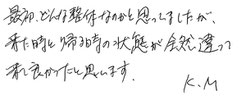 最初、どんな整体なのかと思ってましたが、
来た時と帰る時の状態が全然違って
来て良かったと思います。
K.M